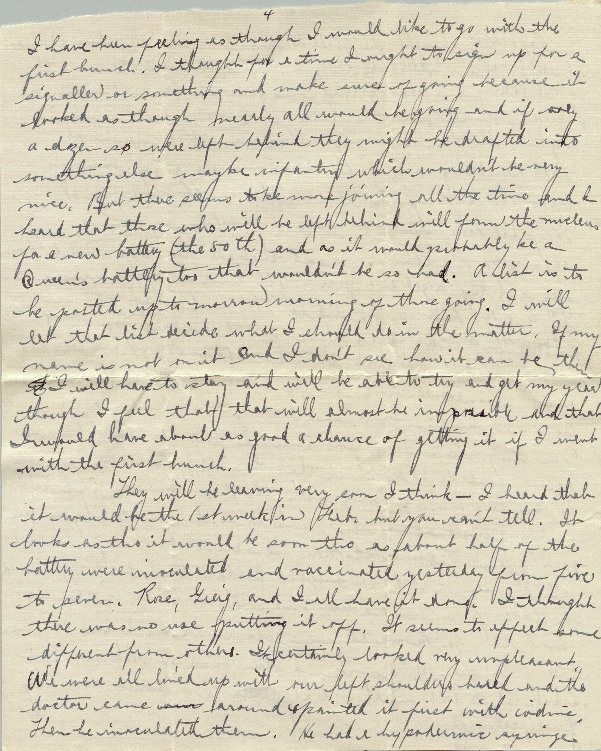 4
I have been feeling as though I would like to go with the
first bunch. I thought for a time I ought to sign up for a
signaller or something and make sure of going because it
looked as though nearly all would be going and if only
a dozen or so were left behind they might be drafted into
something else maybe infantry which wouldn't be very
nice. But there seems to be more joining all the time and I
heard that those who will be left behind will form the nucleus
for a new battery (the 50th) and as it would probably be a
Queen's battery too that wouldn't be so bad. A list is to
be posted up to-morrow morning of those going. I will
let that list decide what I should do in the matter. If my
name is not on it and I don't see how it can be, then
I will have to stay and will be able to try and get my year
though I feel that that will almost be impossible and that
I would have about as good a chance of getting it if I went
with the first bunch.
They will be leaving very soon I think – I heard that
it would be the 1st week in Feb. but you can't tell. It
looks as tho it would be soon tho as about half of the
battery were inoculated and vaccinated yesterday from five
to seven. Rose, Greig, and I all have it done. I thought
there was no use putting it off. It seems to effect some
different from others. It certainly looked very unpleasant.
We were all lined up with our left shoulders bared and the
doctor came around & painted it first with iodine.
Then he inoculated them. He had a hypodermic syringe